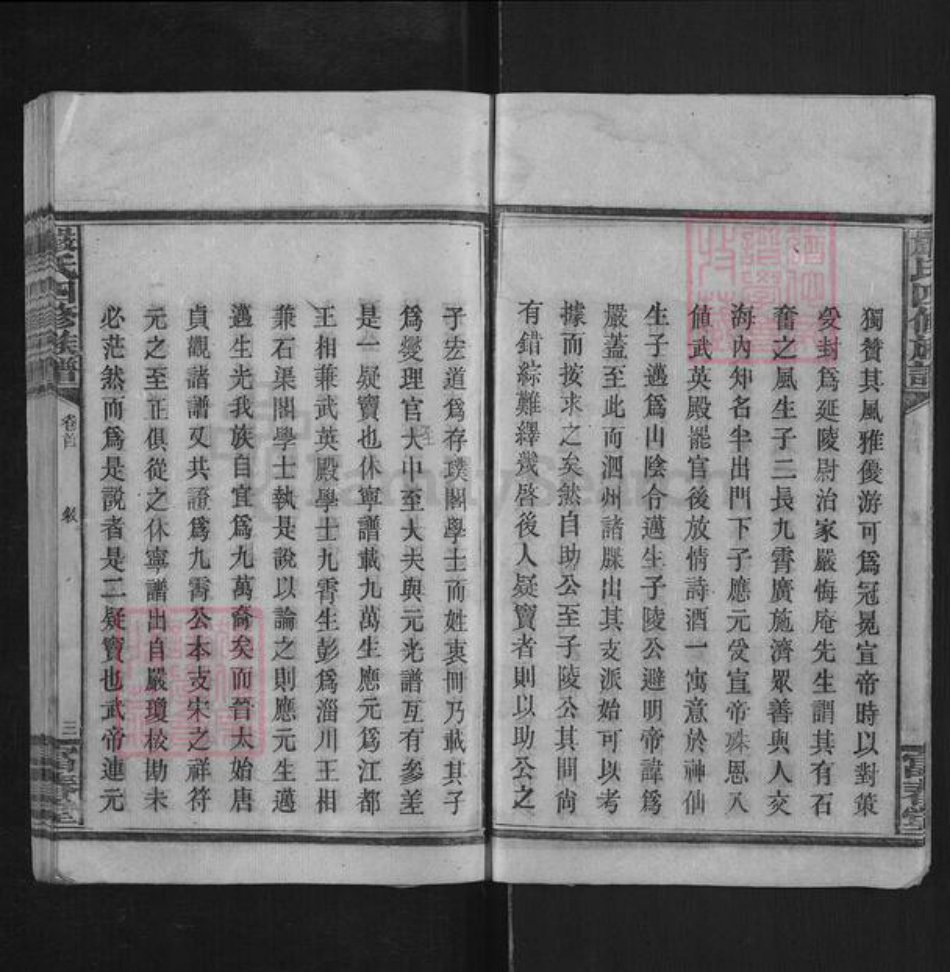 獨贊其風雅優游可為冠冕宣帝時以對策
受封為延陵尉治家嚴悔庵先生謂其有石
奮之風生子二長九霄廣施濟眾善與人交
海內知名半出門下子應元受宣帝殊恩入
值武英殿罷官後放情詩酒一寓意於神仙
生子邁為山陰令邁生子陵公避明帝諱為
嚴蓋至此而泗州諸牒出其支派始可以考
據而按求之矣然自助公至子陵公其間尚
有錯綜難繹幾啓後人疑竇者則以助公之
子宏道為存璞閣學士而姓衷冊乃載其子
為燮理官大中至大夫與元光譜互有參差
是一疑竇也休寧譜載九萬生應元為江都
王相兼武英殿學士九霄生彭為淄川王相
兼石渠閣學士執是說以論之則應元生邁
邁生光我族自宜為九萬裔矣而晉太始唐
貞觀諸譜又共證為九霄公本支宋之祥符
元之至正俱從之休寧譜出自嚴瓊校勘未
必茫然而為是說者是二疑竇也武帝連元
嚴氏四修族譜
卷首
敘
三
富春堂
嚴氏四修族譜
富春堂
FamilySearch